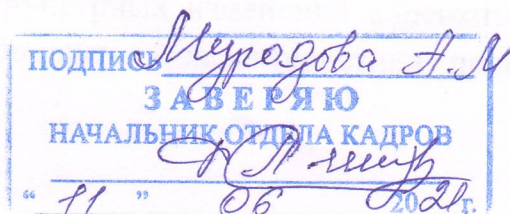 ПОДПИСЬ Мурадова А.М
ЗАВЕРЯЮ
НАЧАЛЬНИК ОТДЕЛА КАДРОВ
“ 11 ” 06 2021 г.